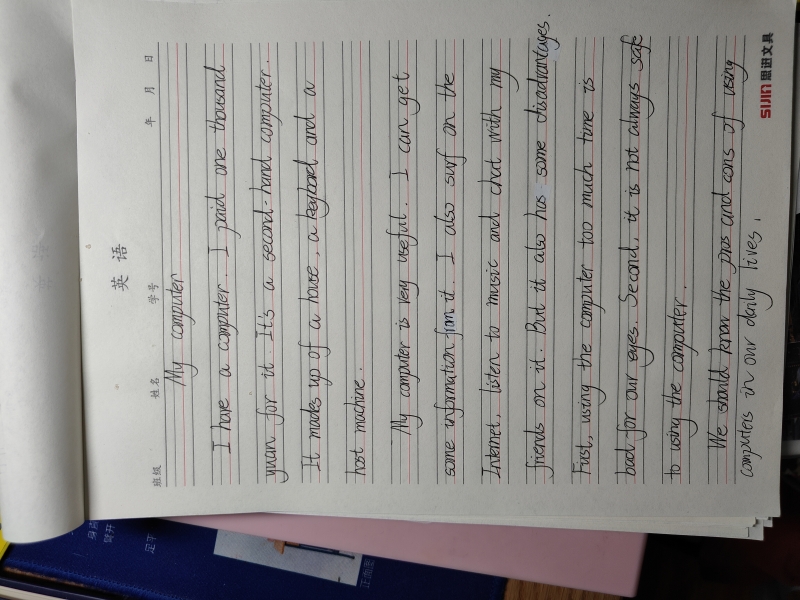 英语
班级 姓名 学号 年 月 日
My computer
I have a computer. I paid one thousand
yuan for it. It's a second-hand computer.
It mades up of a house, a keyboard and a
host machine.
My computer is very useful. I can get
some information from it. I also surf on the
Internet, listen to music and chat with my
friends on it. But it also has some disadvantages.
First, using the computer too much time is
bad for our eyes. Second, it is not always safe
to using the computer.
We should know the pros and cons of using
computers in our daily lives.
SIJIN 思进文具